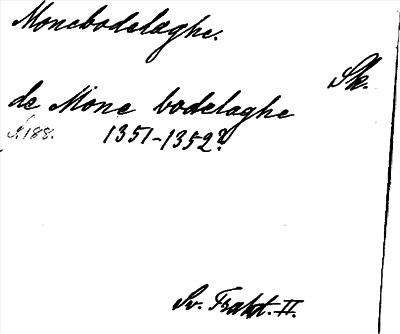 Monebodelaghe.
Sk.
de Mone bodelaghe
N188. 1351-1352?
Sv. Trakt. II.